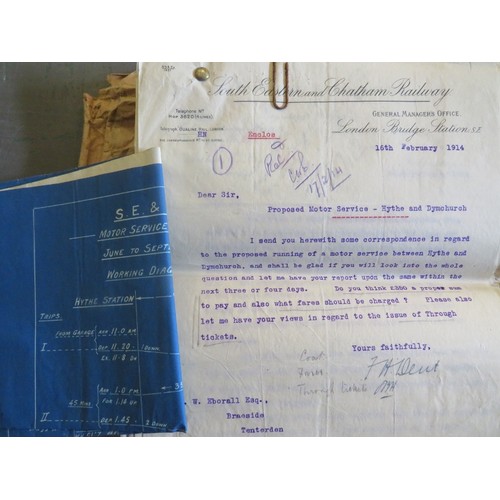 South Eastern and Chatham Railway
Telephone No
GENERAL MANAGER'S OFFICE,
London Bridge Station, S.E.
HN
Enclos
16th February 1914
1
17/2/14
Dear Sir,
Proposed Motor Service - Hythe and Dymchurch
I send you herewith some correspondence in regard
to the proposed running of a motor service between Hythe and
Dymchurch, and shall be glad if you will look into the whole
question and let me have your report upon the same within the
next three or four days. Do you think a proper sum
to pay and also what fares should be charged ? Please also
let me have your views in regard to the issue of Through
tickets.
Yours faithfully,
F H Dent
Cost
Fares
Through tickets
W. Eborall Esq.,
Braeside
Tenterden
S. E. &
MOTOR SERVICE
JUNE TO SEPT
WORKING DIAG
HYTHE STATION
TRIPS.
FROM GARAGE ARR 11.0 AM
I DEP 11.20 1 DOWN
ARR 1.0 PM
45 MINS FOR 1.14 DP
II DEP 1.45 3 DOWN